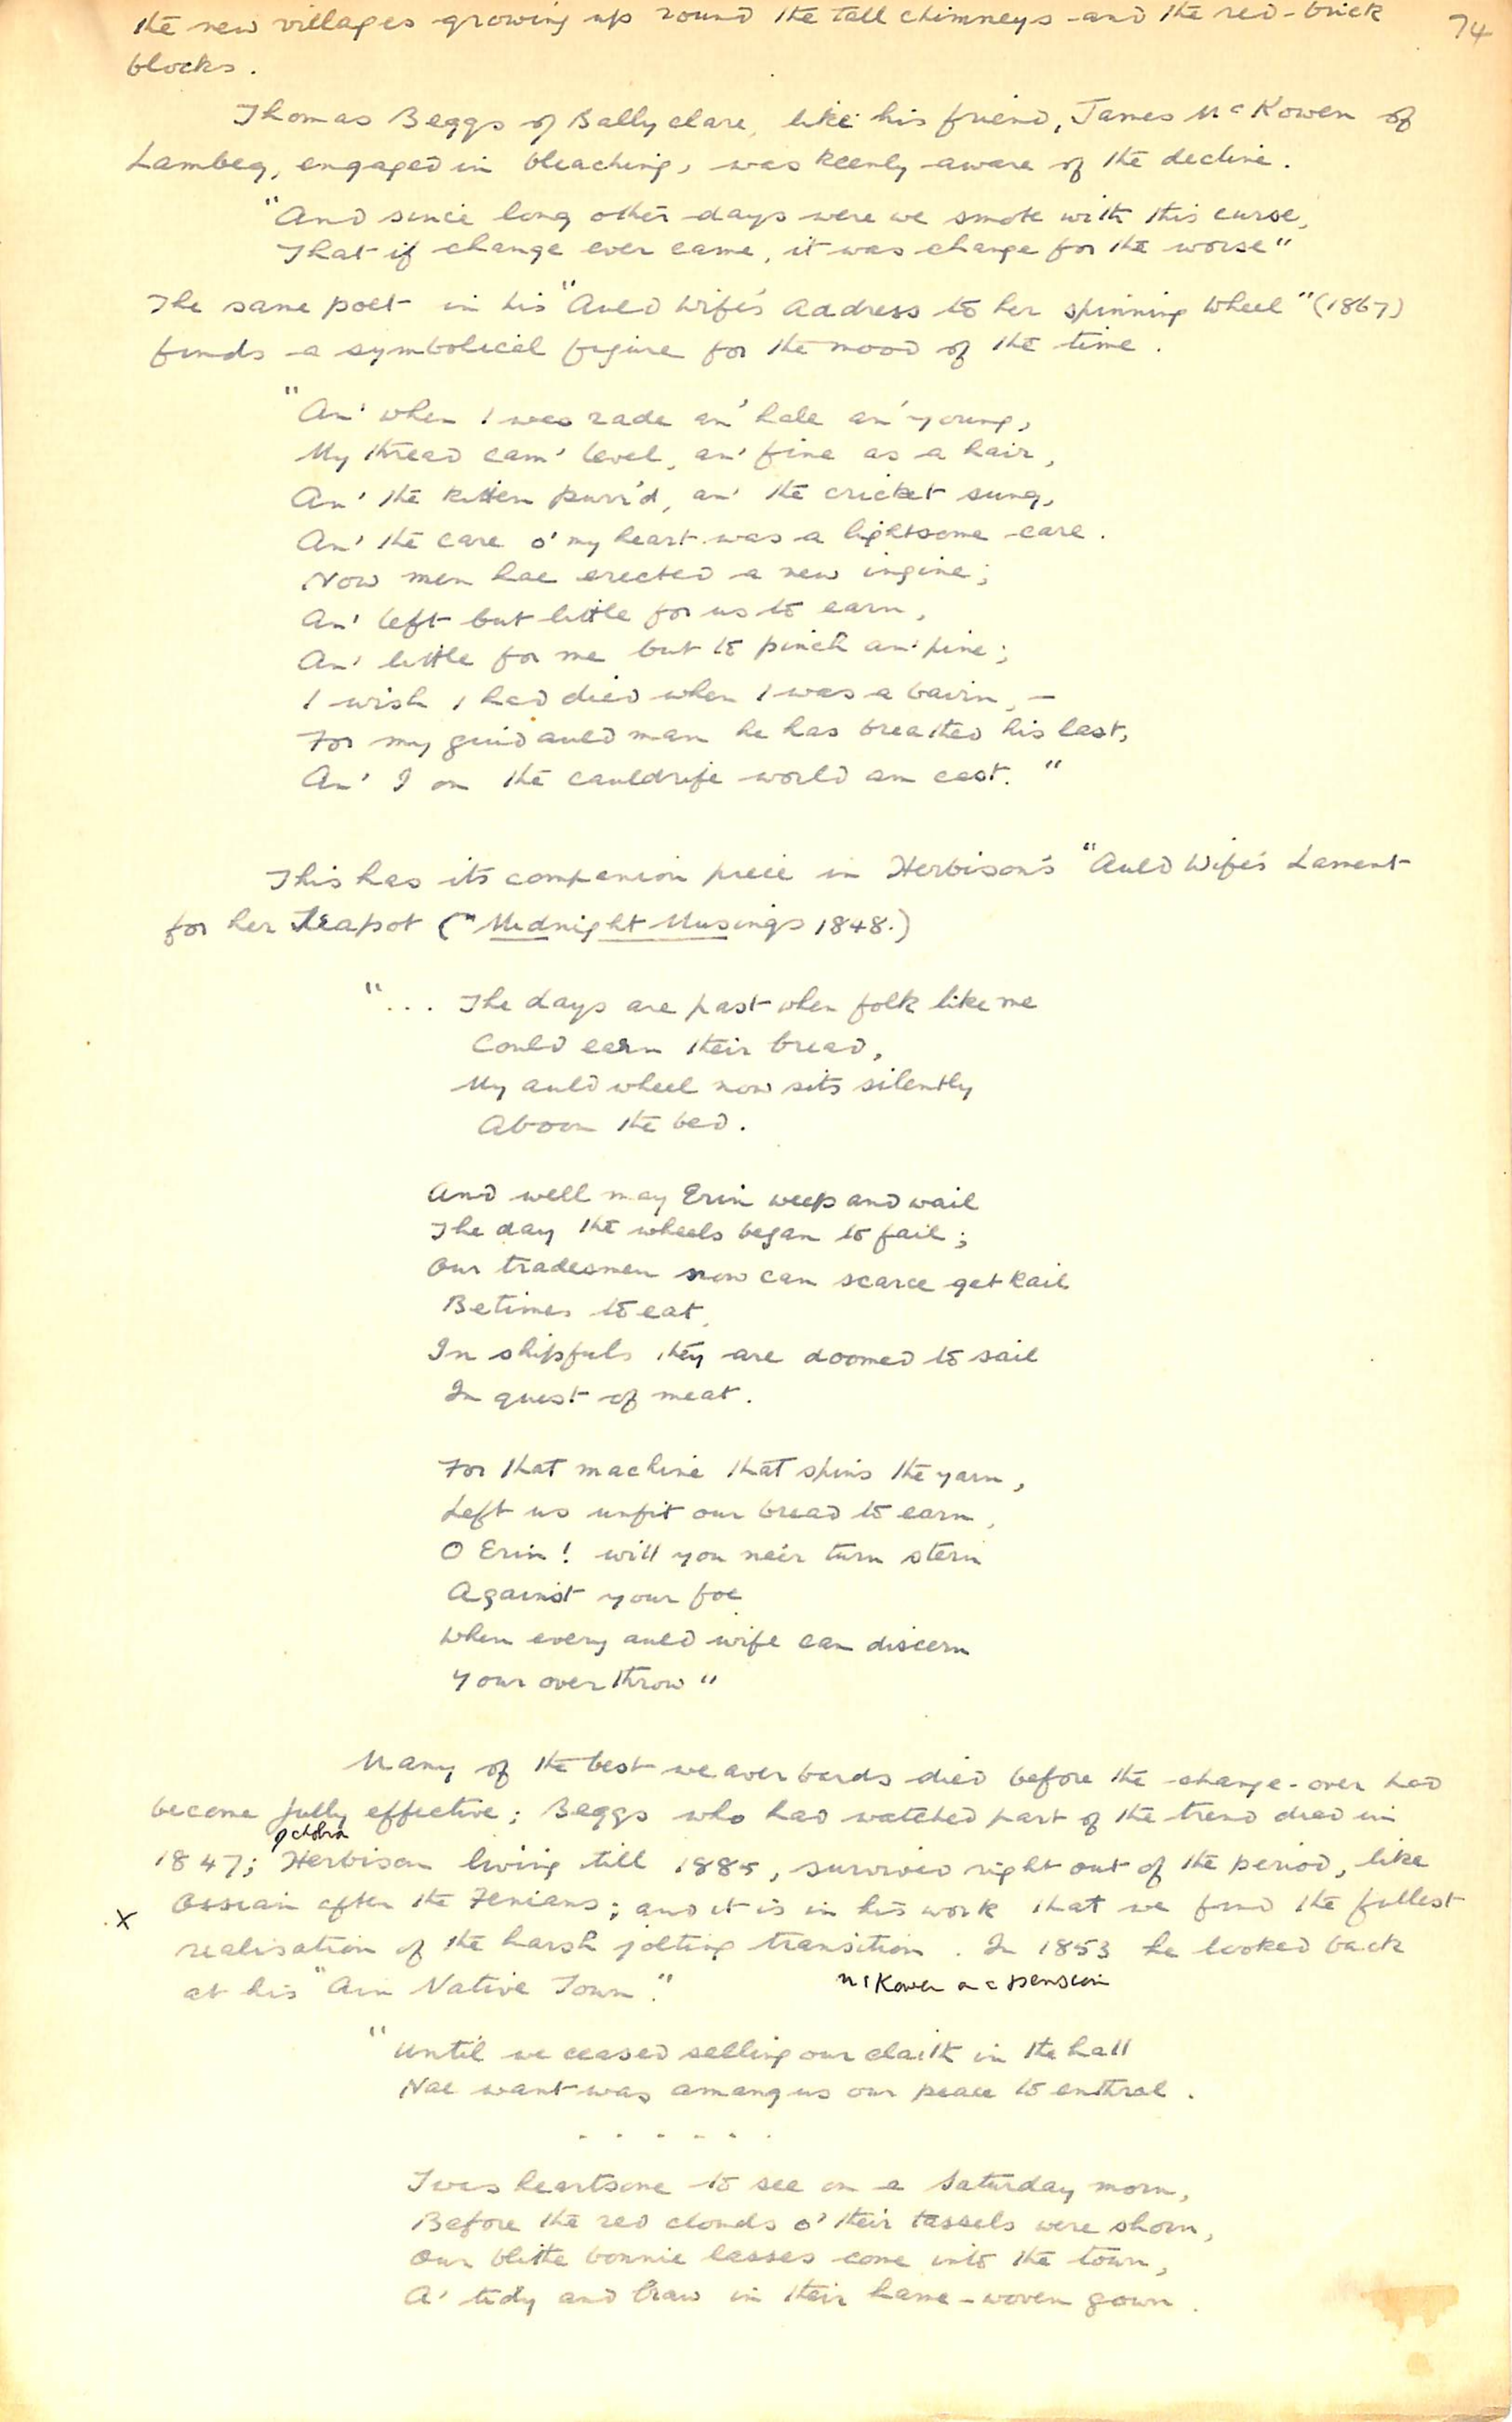 74
the new villages growing up round the tall chimneys and the red-brick
blocks.
Thomas Beggs of Ballyclare, like his friend, James McKowen of
Lambeg, engaged in bleaching, was keenly aware of the decline.
"And since long other days were we smote with this curse,
That if change ever came, it was change for the worse"
The same poet in his "Auld Wife's Address to her spinning Wheel" (1867)
finds a symbolical figure for the mood of the time.
"An' when I was rade an' hale an' young,
My thread cam' level, an' fine as a hair,
An' the kitten purr'd, an' the cricket sung,
An' the care o' my heart was a lightsome care.
Now men hae erected a new ingine;
An' left but little for us to earn,
An' little for me but to pinch an' pine;
I wish I had died when I was a bairn, –
For my guid auld man he has breathed his last,
An' I on the cauldrife world am cast."
This has its companion piece in Herbison's "Auld Wife's Lament
for her Teapot ("Midnight Musings 1848.)
"... The days are past when folk like me
Could earn their bread,
My auld wheel now sits silently
Aboon the bed.
And well may Erin weep and wail
The day the wheels began to fail;
Our tradesmen now can scarce get kail
Betimes to eat,
In shipfuls they are doomed to sail
In quest of meat.
For that machine that spins the yarn,
Left us unfit our bread to earn,
O Erin! will you ne'er turn stern
Against your foe
When every auld wife can discern
Your overthrow"
Many of the best weaver bards died before the change-over had
become fully effective; Beggs who had watched part of the trend died in
1847; Herbison living till 1885, survived right out of the period, like
x Ossian after the Fenians; and it is in his work that we find the fullest
realisation of the harsh jolting transition. In 1853 he looked back
at his "Ain Native Town".
McKowen on a pension
"Until we ceased selling our claith in the hall
Nae want was amang us our peace to enthral.
. . . . . .
'Twas heartsome to see on a Saturday morn,
Before the red clouds o' their tassels were shorn,
Our blithe bonnie lasses come into the town,
A' tidy and braw in their hame-woven gown.